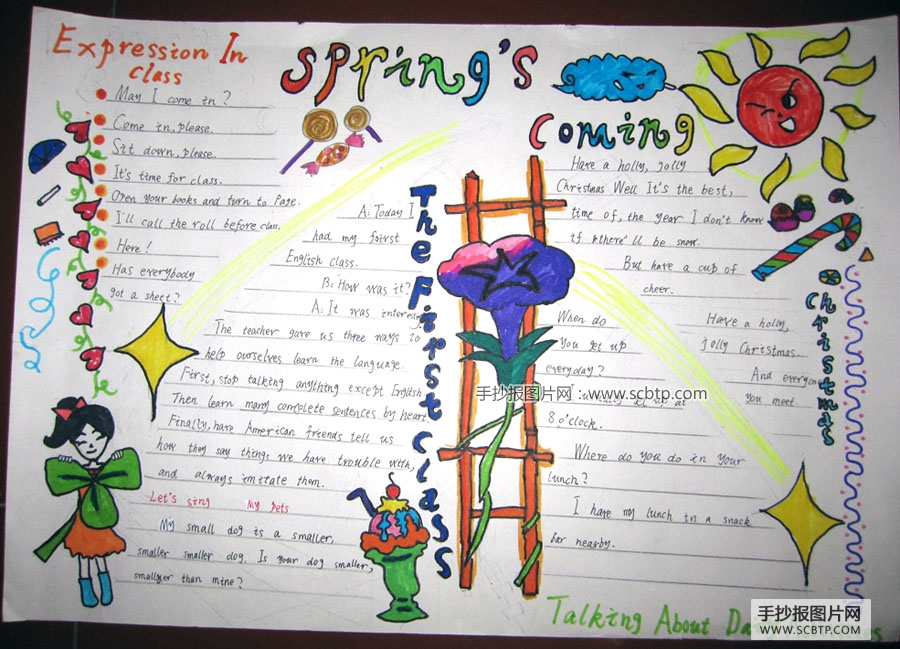 Expression In
class
May I come in?
Come in, please.
Sit down, please.
It's time for class.
Open your books and turn to Page.
I'll call the roll before class.
Here!
Has everybody
got a sheet?
Spring's
Coming
The First Class
A: Today I
had my first
English class.
B: How was it?
A: It was interes
The teacher gave us three ways to
help ourselves learn the language.
First, stop talking anything except English.
Then learn many complete sentences by heart.
Finally, have American friends tell us
how they say things we have trouble with,
and always imitate them.
Let's sing My pets
My small dog is a smaller,
smaller smaller dog. Is your dog smaller,
smallyer than mine?
Have a holly, jolly
Christmas Well It's the best,
time of, the year I don't know
if kthere'll be snow.
But have a cup of
cheer.
Christmas
Have a holly,
jolly Christmas.
And everyone
you meet
When do
you get up
everyday?
at
8 o'clock.
Where do you do in your
lunch?
I have my lunch in a snack
bar nearby.
Talking About Da
手抄报图片网:www.scbtp.com
手抄报图片网
WWW.SCBTP.COM